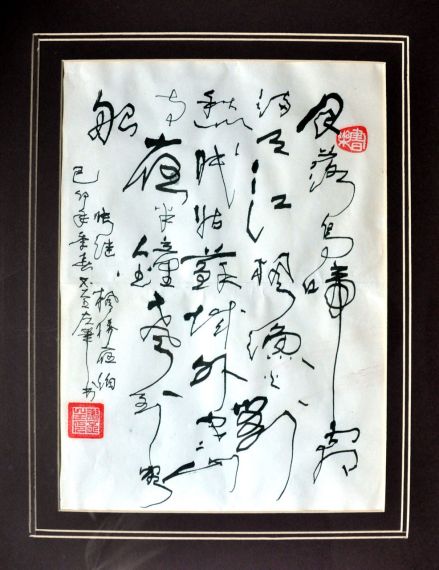 月落烏啼霜
滿天江楓漁火對
愁眠姑蘇城外寒山
寺夜半鐘聲到客
船
張继·楓橋夜泊
己卯年季春左筆书